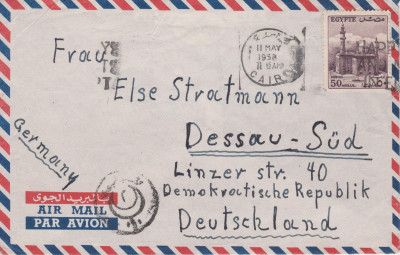 Frau
Else Stratmann
Dessau-Süd
Linzer str. 40
Demokratische Republik
Deutschland
Germany
11 MAY
1958
CAIRO
EGYPTE مصر
50
بالبريد الجوى
AIR MAIL
PAR AVION